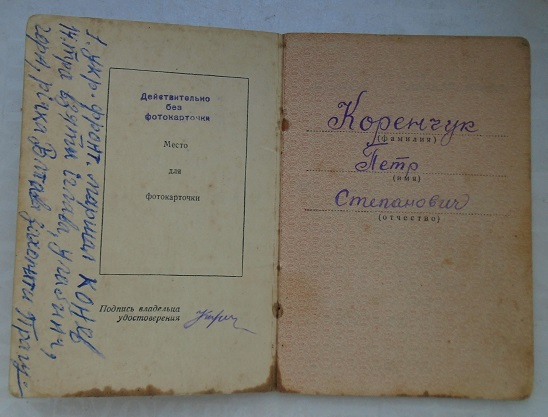 1. укр. фронт маршал Конев
річка Влтава захопити Прагу
Действительно
без
фотокарточки
Место
для
фотокарточки
Подпись владельца
удостоверения
Коренчук
(фамилия)
Петр
(имя)
Степанович
(отчество)